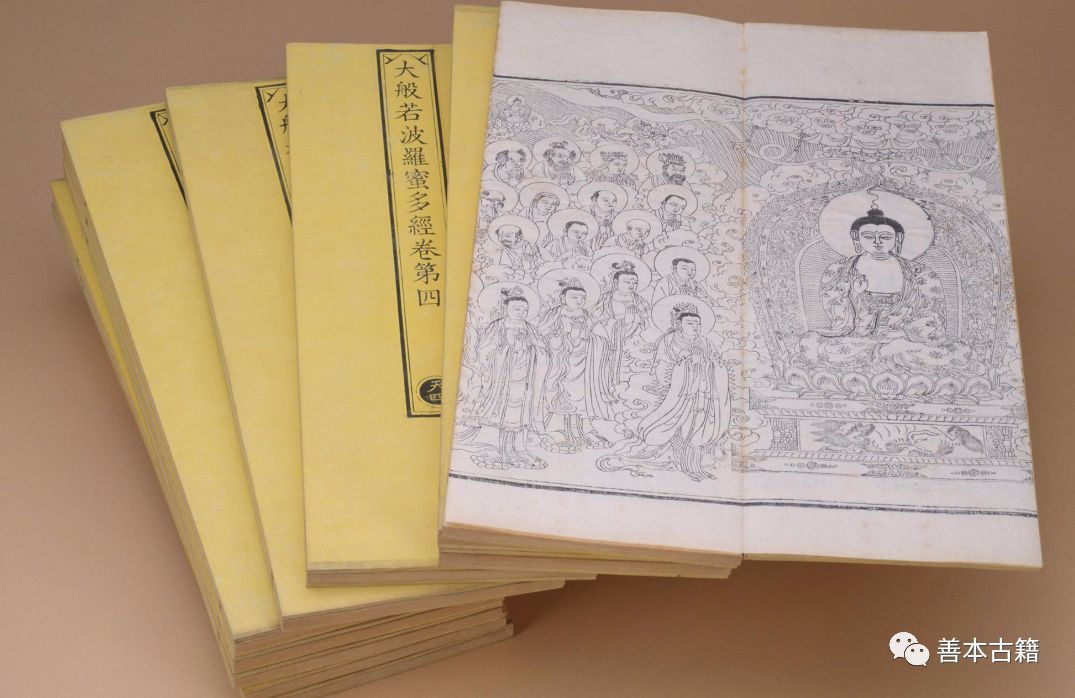 大般若波羅蜜多經卷第四
天四
大般
善本古籍